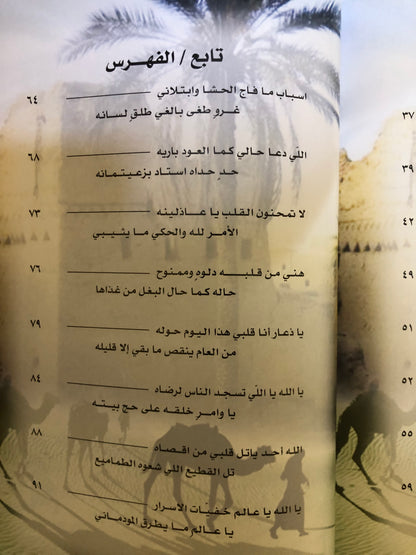 تابع / الفهرس
اسباب ما فاج الحشا وابتلاني ٦٤
غروٍ طغى بالغي طلقٍ لسانه
اللّي دعا حالي كما العود باريه ٦٨
حدٍ حداه استاد بزعيتمانه
لا تمحنون القلب يا عاذلينه ٧٣
الأمر لله والحكي ما يثيبي
هني من قلبه دلوهٍ وممنوح ٧٦
حاله كما حال البغل من غذاها
يا ذعار أنا قلبي هذا اليوم حوله ٧٩
من العام ينقص ما بقي إلا قليله
يا الله يا اللّي تسجد الناس لرضاه ٨٤
يا وامرٍ خلقه على حج بيته
الله أحد ياتل قلبي من اقصاه ٨٨
تل القطيع اللي شعوه الطماميع
يا الله يا عالم خفيّات الأسرار ٩١
يا عالمٍ ما يطرق المودماني
٣٧
٣٩
٤٢
٤٩
٥١
٥٢
٥٥
٥٩